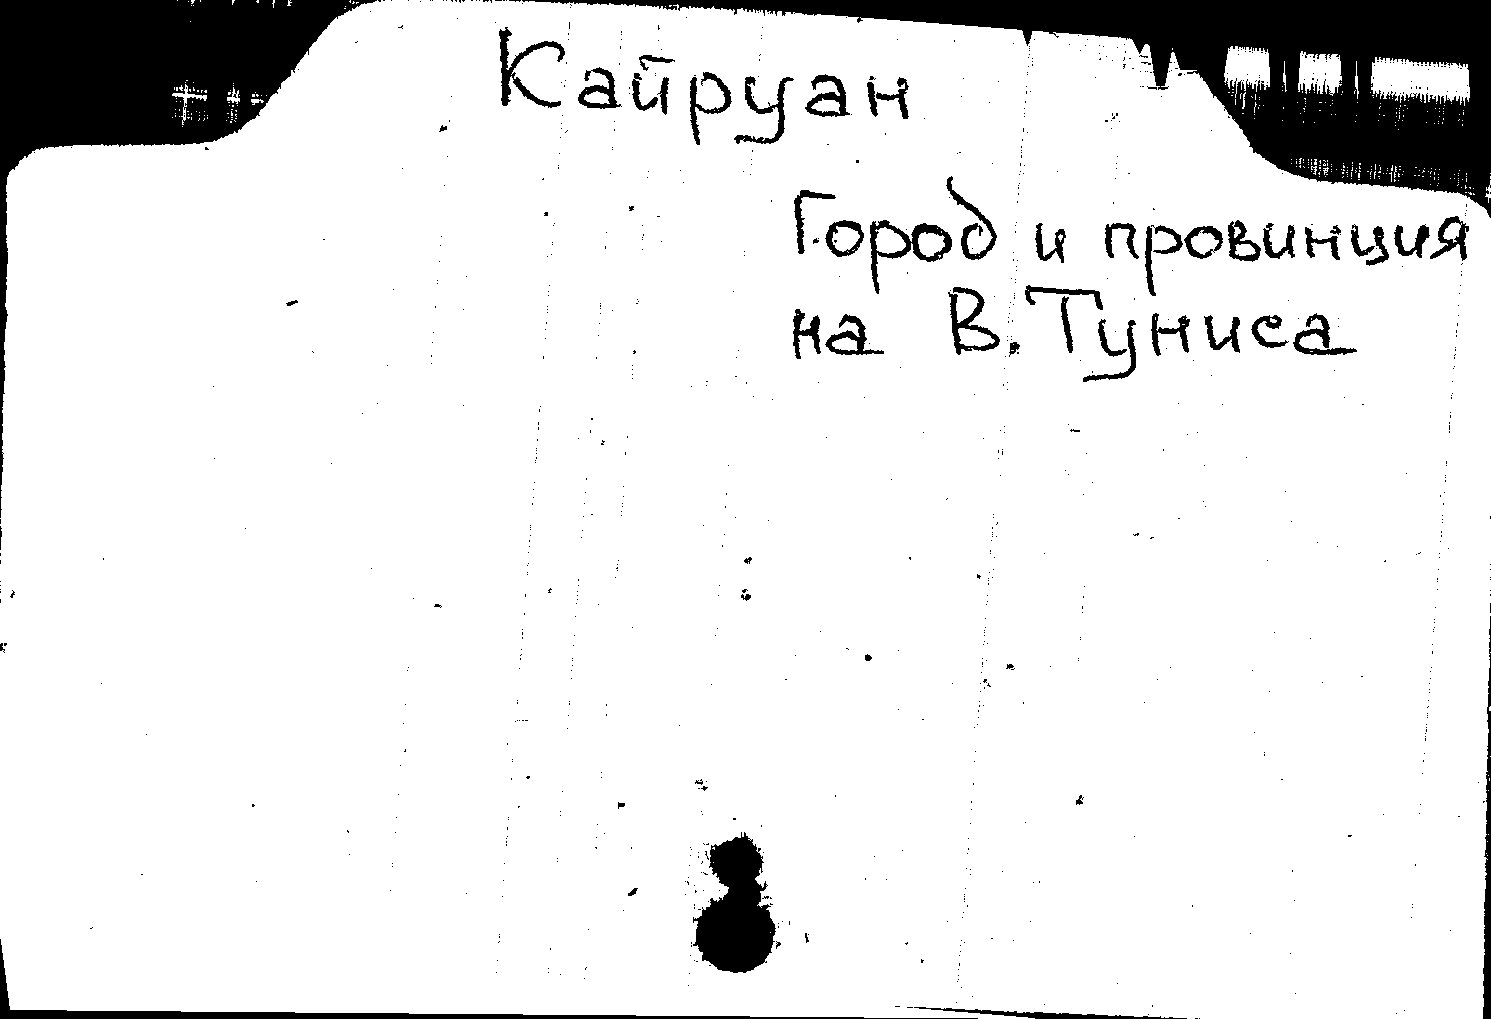 Кайруан
Город и провинция
на В. Туниса